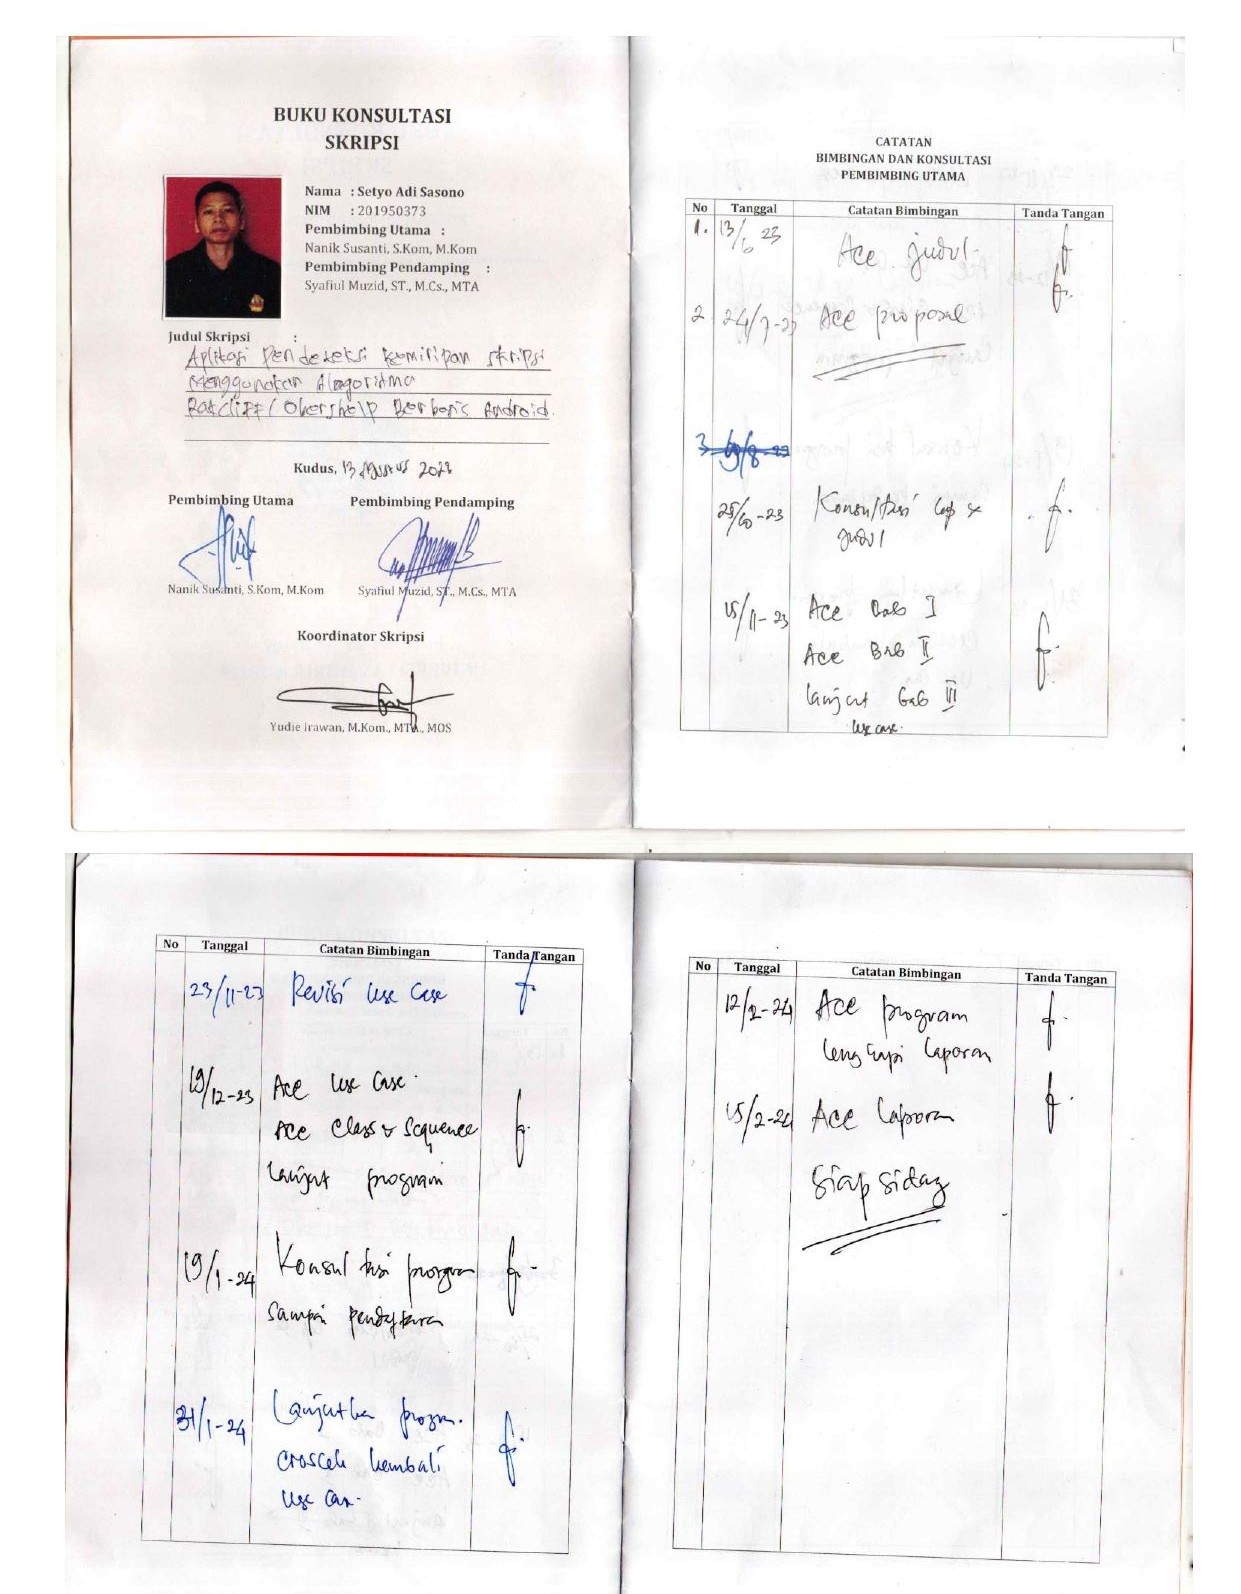 BUKU KONSULTASI
SKRIPSI
Nama : Setyo Adi Sasono
NIM : 201950373
Pembimbing Utama :
Nanik Susanti, S.Kom, M.Kom
Pembimbing Pendamping :
Syafiul Muzid, ST., M.Cs., MTA
Judul Skripsi :
Aplikasi Pendeteksi Kemiripan Skripsi
Menggunakan Algoritma
Ratcliff/Obershelp Berbasis Android.
Kudus, 13 Agustus 2023
Pembimbing Utama Pembimbing Pendamping
Nanik Susanti, S.Kom, M.Kom Syafiul Muzid, ST., M.Cs., MTA
Koordinator Skripsi
Yudie Irawan, M.Kom., MTA., MOS
CATATAN
BIMBINGAN DAN KONSULTASI
PEMBIMBING UTAMA
No Tanggal Catatan Bimbingan Tanda Tangan
1. 13/6 23 Acc judul
2 24/7-23 Acc proposal
3
25/10-23 Konsultasi
judul
15/11-23 Acc Bab I
Acc Bab II
lanjut bab III
use case.
No Tanggal Catatan Bimbingan Tanda Tangan
23/11-23 Revisi use case
19/12-23 Acc use case.
Acc class & sequence
lanjut program
19/1-24 Konsultasi program
sampai
31/1-24 Lanjutkan program.
croscek kembali
use case.
No Tanggal Catatan Bimbingan Tanda Tangan
12/2-24 Acc program
lengkapi laporan
15/2-24 Acc laporan
siap sidang